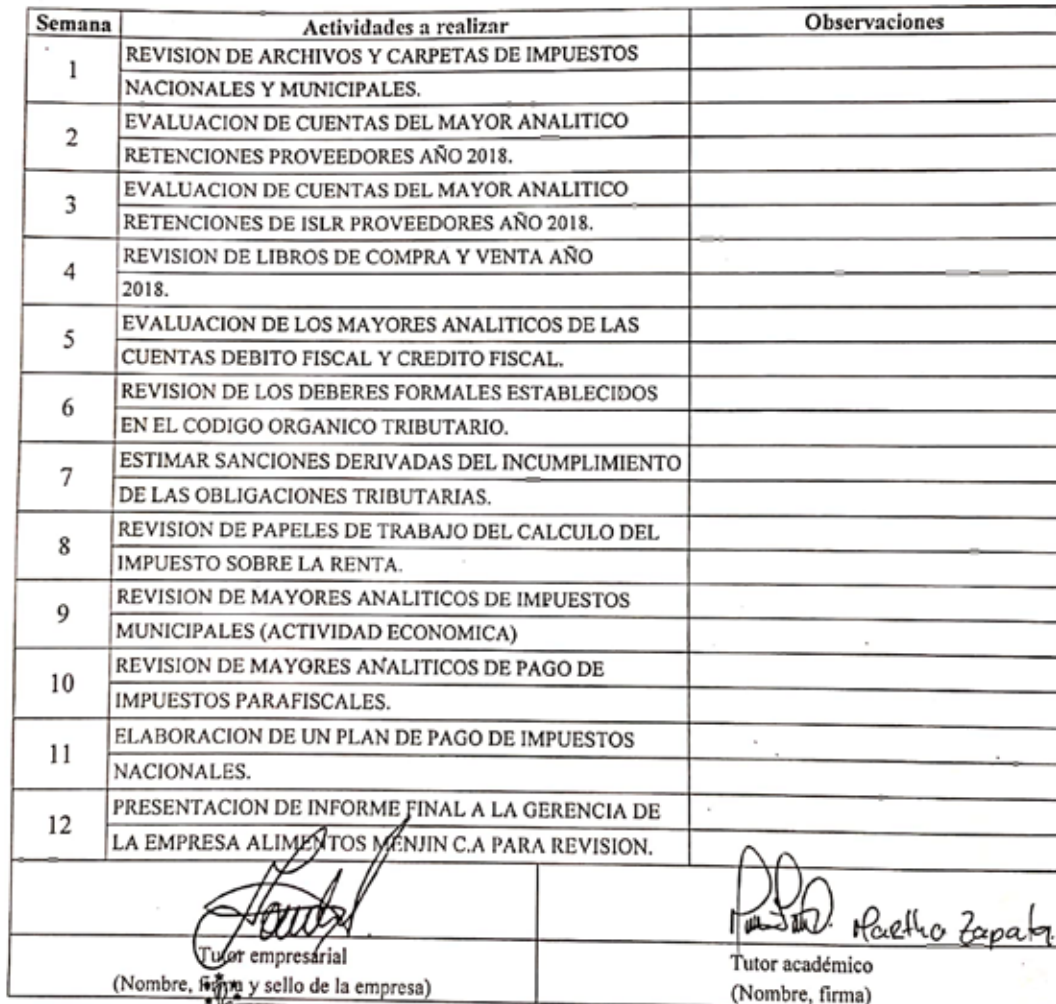 Semana Actividades a realizar Observaciones
1 REVISION DE ARCHIVOS Y CARPETAS DE IMPUESTOS
NACIONALES Y MUNICIPALES.
2 EVALUACION DE CUENTAS DEL MAYOR ANALITICO
RETENCIONES PROVEEDORES AÑO 2018.
3 EVALUACION DE CUENTAS DEL MAYOR ANALITICO
RETENCIONES DE ISLR PROVEEDORES AÑO 2018.
4 REVISION DE LIBROS DE COMPRA Y VENTA AÑO
2018.
5 EVALUACION DE LOS MAYORES ANALITICOS DE LAS
CUENTAS DEBITO FISCAL Y CREDITO FISCAL.
6 REVISION DE LOS DEBERES FORMALES ESTABLECIDOS
EN EL CODIGO ORGANICO TRIBUTARIO.
7 ESTIMAR SANCIONES DERIVADAS DEL INCUMPLIMIENTO
DE LAS OBLIGACIONES TRIBUTARIAS.
8 REVISION DE PAPELES DE TRABAJO DEL CALCULO DEL
IMPUESTO SOBRE LA RENTA.
9 REVISION DE MAYORES ANALITICOS DE IMPUESTOS
MUNICIPALES (ACTIVIDAD ECONOMICA)
10 REVISION DE MAYORES ANALITICOS DE PAGO DE
IMPUESTOS PARAFISCALES.
11 ELABORACION DE UN PLAN DE PAGO DE IMPUESTOS
NACIONALES.
12 PRESENTACION DE INFORME FINAL A LA GERENCIA DE
LA EMPRESA ALIMENTOS MENJIN C.A PARA REVISION.
Martha Zapata.
Tutor empresarial
(Nombre, firma y sello de la empresa)
Tutor académico
(Nombre, firma)